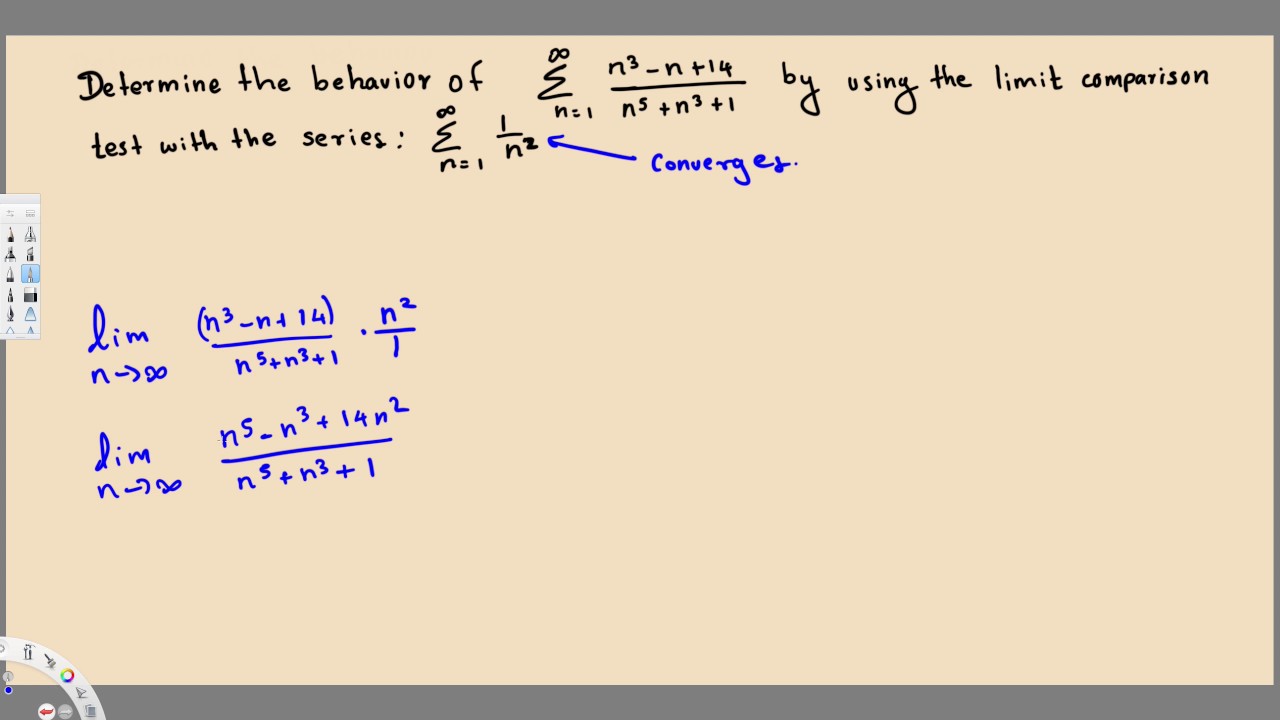 Determine the behavior of ∞ Σ n=1 n³ - n + 14 / n⁵ + n³ + 1 by using the limit comparison
test with the series: ∞ Σ n=1 1 / n² ← Converges.
lim n→∞ (n³ - n + 14) / n⁵ + n³ + 1 · n² / 1
lim n→∞ n⁵ - n³ + 14n² / n⁵ + n³ + 1